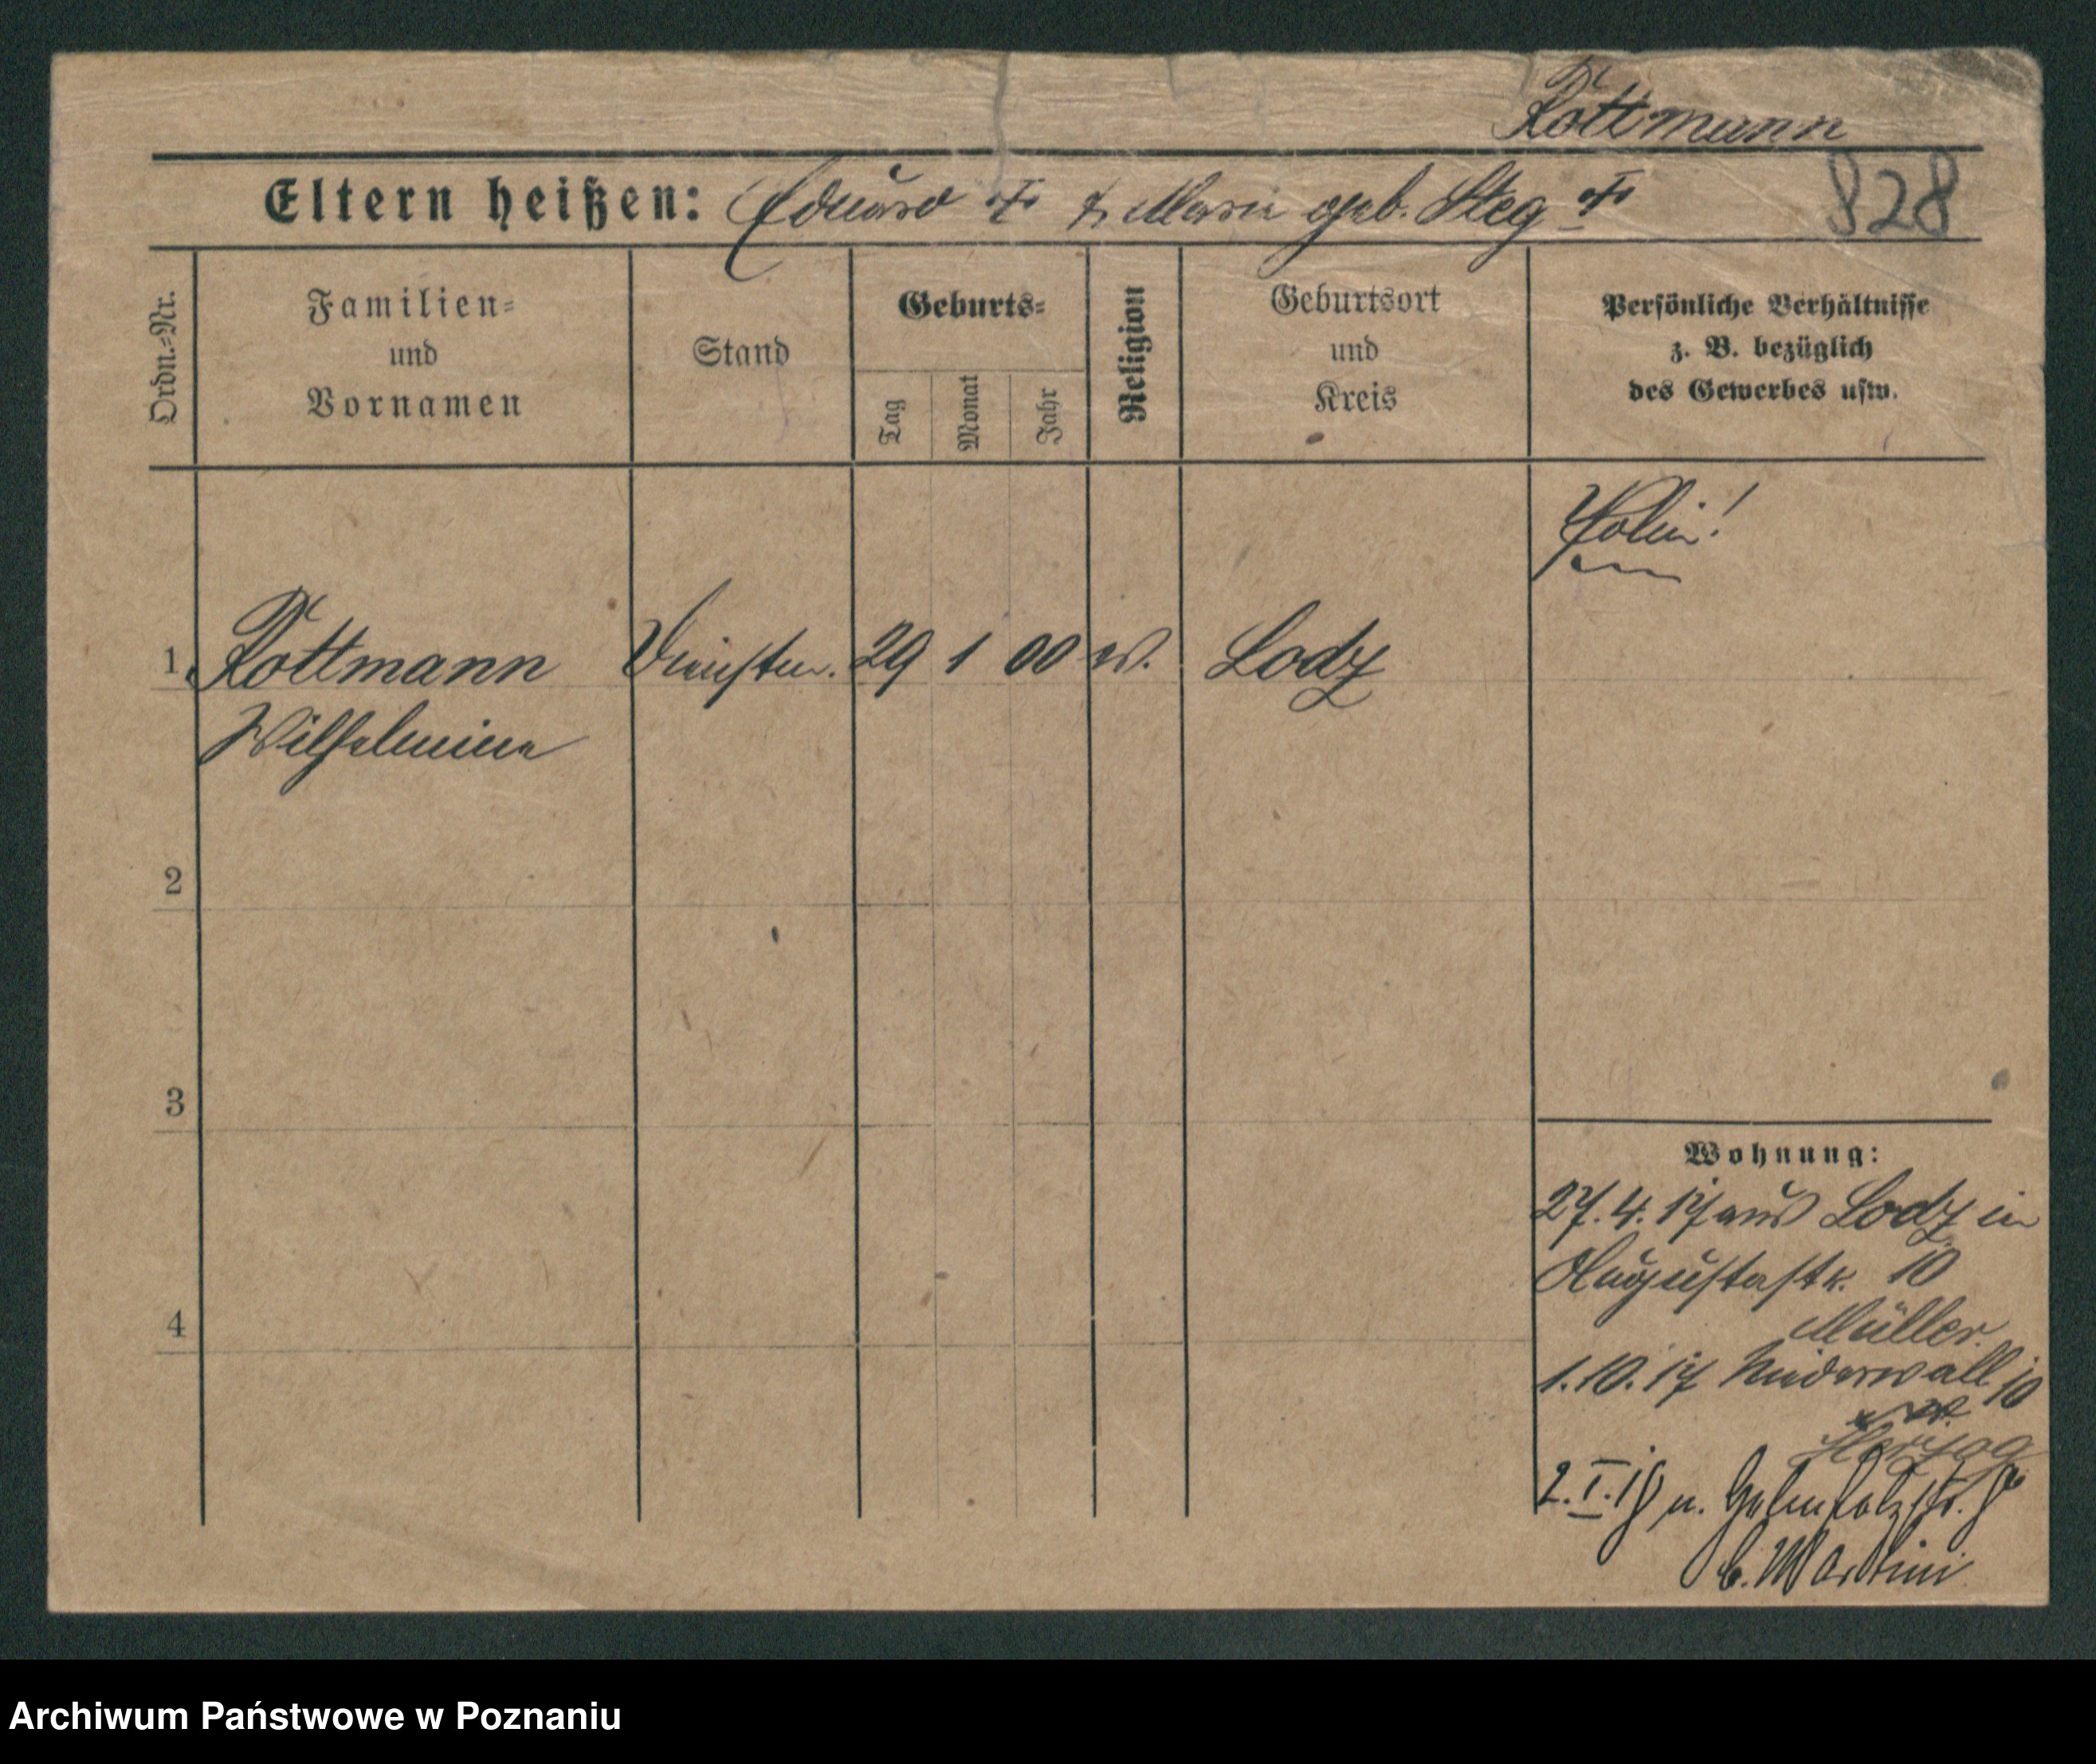 Rottmann
Eltern heißen: Eduard † & Marie geb. Steg †
828
Ordn.-Nr.
Familien-
und
Vornamen
Stand
Geburts-
Tag
Monat
Jahr
Religion
Geburtsort
und
Kreis
Persönliche Verhältnisse
z. B. bezüglich
des Gewerbes usw.
Polin!
1. Rottmann 29 1 00 Lodz
Wilhelmine
2
3
4
Wohnung:
27.4.17 aus Lodz in
Augustastr. 10
Müller.
1.10.17 Niederwall 10
Herzog
2.I.19 n. Helmholzstr.
b. Martini
Archiwum Państwowe w Poznaniu